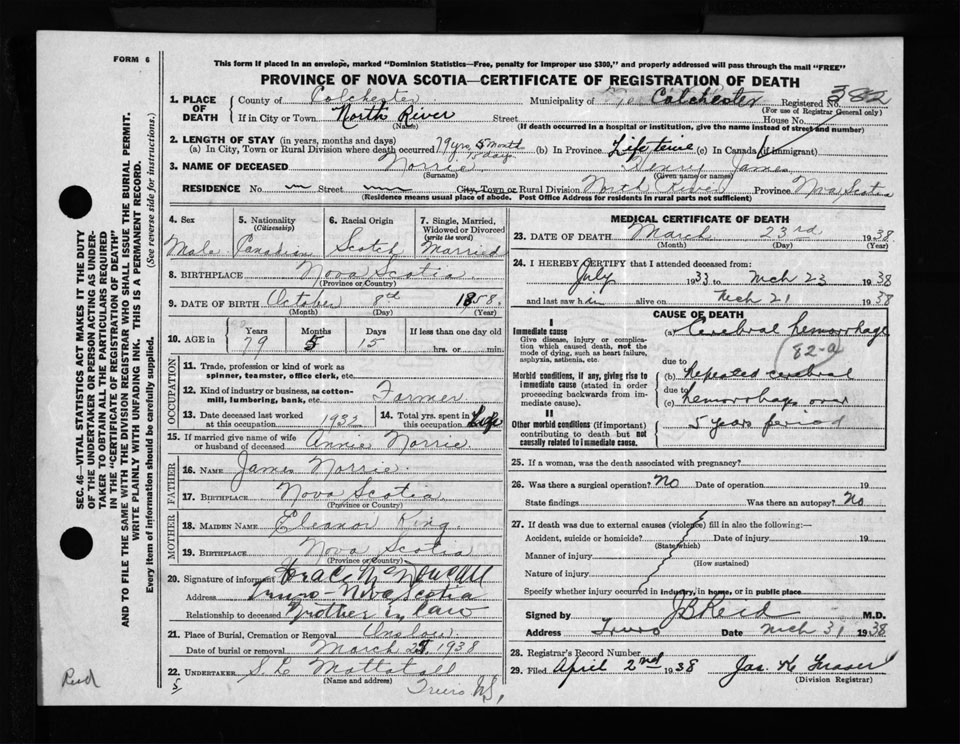 FORM 6
This form if placed in an envelope, marked "Dominion Statistics—Free, penalty for improper use $300," and properly addressed will pass through the mail "FREE"
PROVINCE OF NOVA SCOTIA—CERTIFICATE OF REGISTRATION OF DEATH
1. PLACE OF DEATH County of Colchester Municipality of Colchester Registered No. 382
(For use of Registrar General only)
If in City or Town North River Street House No.
(Name) (If death occurred in a hospital or institution, give the name instead of street and number)
2. LENGTH OF STAY (in years, months and days)
(a) In City, Town or Rural Division where death occurred 79 yrs 5 month 15 days (b) In Province Lifetime (c) In Canada (if immigrant)
3. NAME OF DECEASED Norrie Henry James
(Surname) (Given name or names)
RESIDENCE No. Street City, Town or Rural Division North River Province Nova Scotia
(Residence means usual place of abode. Post Office Address for residents in rural parts not sufficient)
4. Sex Male
5. Nationality (Citizenship) Canadian
6. Racial Origin Scotch
7. Single, Married, Widowed or Divorced (write the word) Married
8. BIRTHPLACE Nova Scotia
(Province or Country)
9. DATE OF BIRTH October 8th 1858
(Month) (Day) (Year)
10. AGE in Years 79 Months 5 Days 15 If less than one day old hrs. or min.
OCCUPATION
11. Trade, profession or kind of work as spinner, teamster, office clerk, etc.
12. Kind of industry or business, as cotton-mill, lumbering, bank, etc. Farmer
13. Date deceased last worked at this occupation 1932
14. Total yrs. spent in this occupation Life
15. If married give name of wife or husband of deceased Annie Norrie
FATHER
16. NAME James Norrie
17. BIRTHPLACE Nova Scotia
(Province or Country)
MOTHER
18. MAIDEN NAME Eleanor King
19. BIRTHPLACE Nova Scotia
(Province or Country)
20. Signature of informant
Address Truro - Nova Scotia
Relationship to deceased Brother in Law
21. Place of Burial, Cremation or Removal Onslow
Date of burial or removal March 25 1938
22. UNDERTAKER S. L. Mattatall
(Name and address)
Truro N.S.
MEDICAL CERTIFICATE OF DEATH
23. DATE OF DEATH March 23rd 1938
(Month) (Day) (Year)
24. I HEREBY CERTIFY that I attended deceased from:
July 1933 to Mch 23 1938
and last saw him alive on Mch 21 1938
CAUSE OF DEATH
I
Immediate cause (a) Cerebral hemorrhage
Give disease, injury or complication which caused death, not the mode of dying, such as heart failure, asphyxia, asthenia, etc.
82-a
due to
Morbid conditions, if any, giving rise to immediate cause (stated in order proceeding backwards from immediate cause).
(b) Repeated cerebral
due to
(c) hemorrhage over
II
5 years period
Other morbid conditions (if important) contributing to death but not causally related to immediate cause.
25. If a woman, was the death associated with pregnancy?
26. Was there a surgical operation? No Date of operation 19
State findings Was there an autopsy? No
27. If death was due to external causes (violence) fill in also the following:—
Accident, suicide or homicide? Date of injury 19
(State which)
Manner of injury
(How sustained)
Nature of injury
Specify whether injury occurred in industry, in home, or in public place
Signed by J B Reid M.D.
Address Truro Date Mch 31 1938
28. Registrar's Record Number
29. Filed April 2nd 1938 Jas. H. Fraser
(Division Registrar)
SEC. 46—VITAL STATISTICS ACT MAKES IT THE DUTY
OF THE UNDERTAKER OR PERSON ACTING AS UNDER-
TAKER TO OBTAIN ALL THE PARTICULARS REQUIRED
IN THE "CERTIFICATE OF REGISTRATION OF DEATH"
AND TO FILE THE SAME WITH THE DIVISION REGISTRAR WHO SHALL ISSUE THE BURIAL PERMIT.
WRITE PLAINLY WITH UNFADING INK. THIS IS A PERMANENT RECORD.
Every item of information should be carefully supplied. (See reverse side for instructions.)
Reid